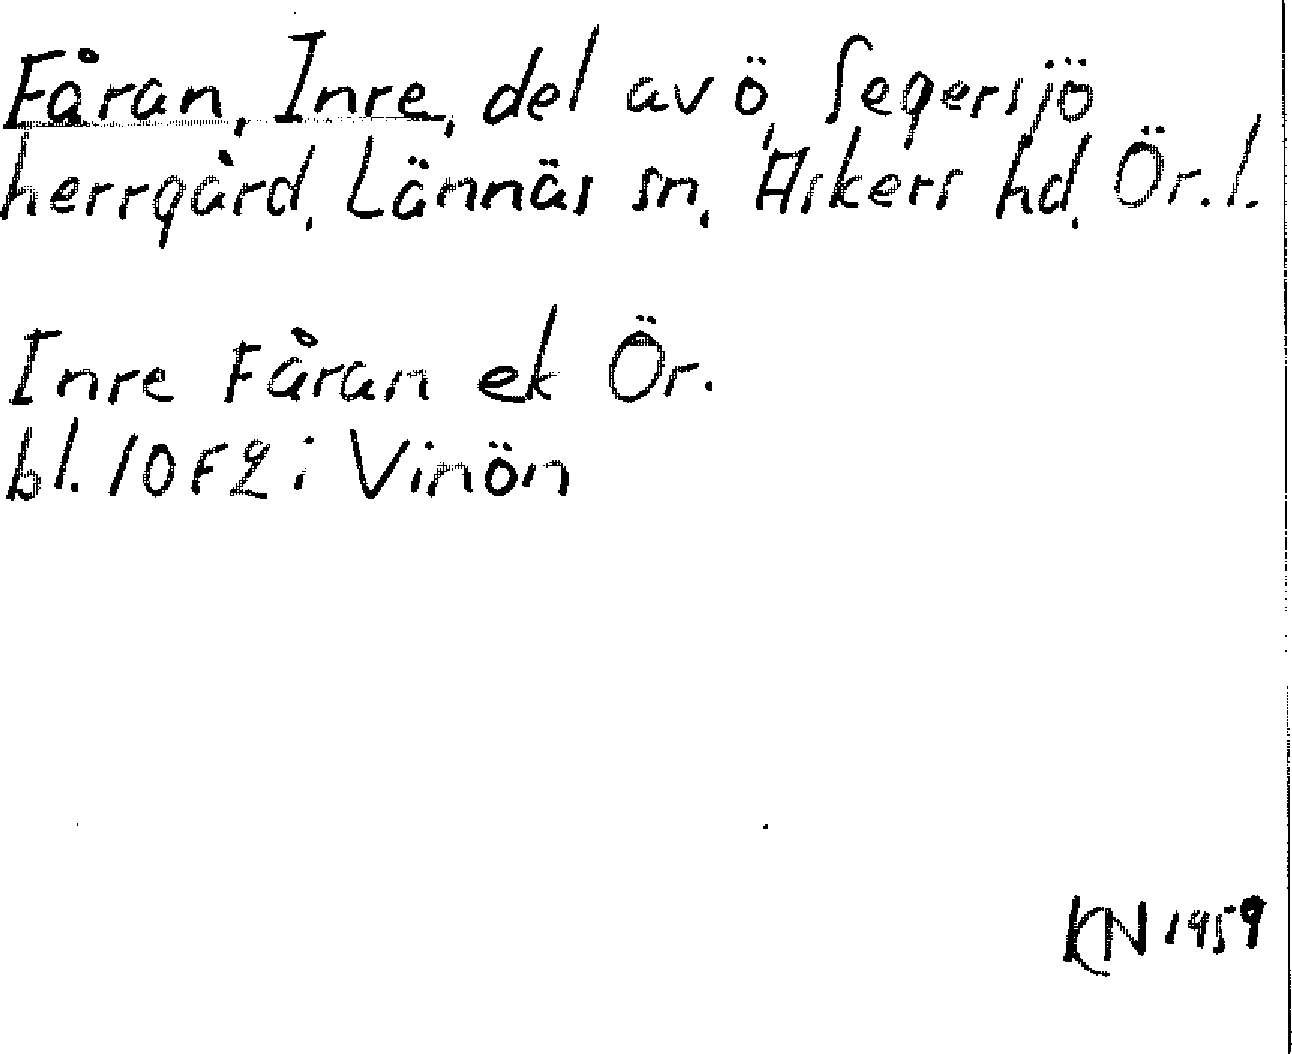 Fåran, Inre, del av ö, Segersjö
herrgård, Lännäs sn, Askers hd, Ör. l.
Inre Fåran ek Ör.
bl. 10 F 2 i Vinön
KN 1959